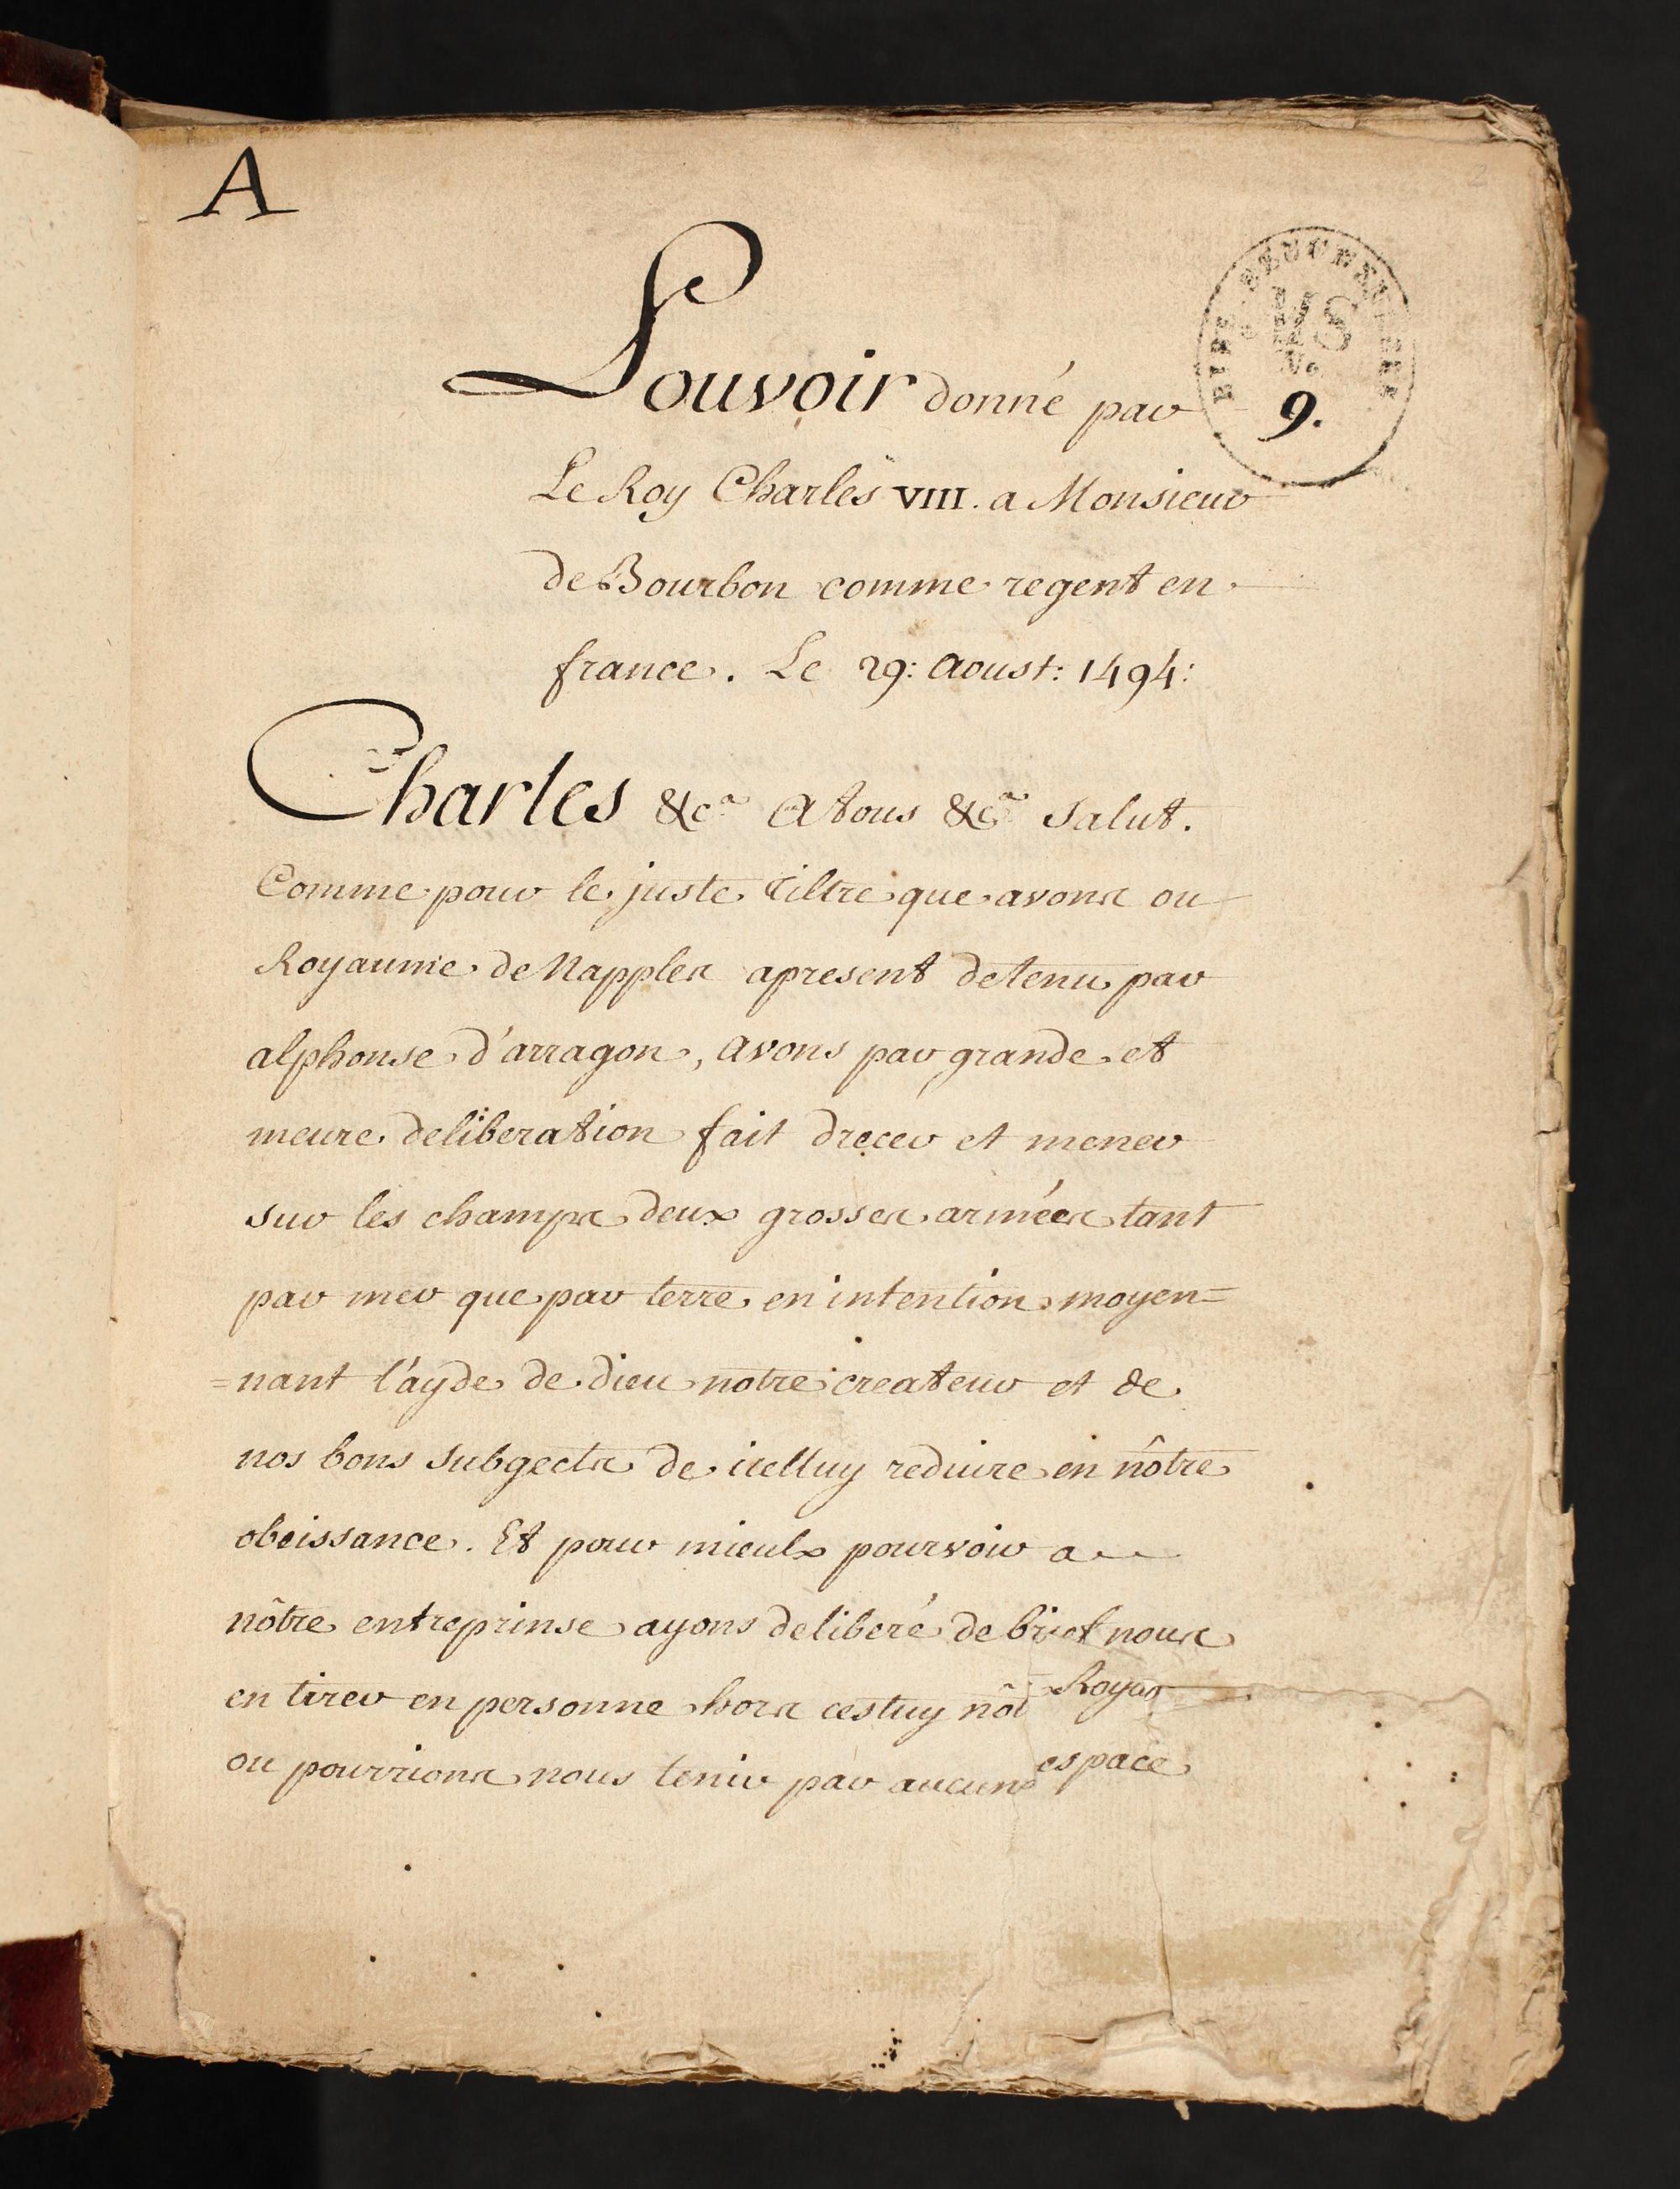 A
2
MS
No
9.
Pouvoir donné par
Le Roy Charles VIII. a Monsieur
de Bourbon comme regent en
france. Le 29: Aoust: 1494:
Charles &ca A tous &ca Salut.
Comme pour le juste tiltre que avons ou
Royaume de Napples apresent detenu par
alphonse d'arragon, avons par grande et
meure deliberation fait drecer et mener
sur les champs deux grosses armées tant
par mer que par terre en intention moyen=
=nant l'ayde de dieu notre createur et de
nos bons subgects de icelluy reduire en nôtre
obeissance. Et pour mieulx pourvoir a
nôtre entreprinse ayons deliberé de brief nous
en tirer en personne hors cestuy
ou pourrions nous tenir par aucun espace